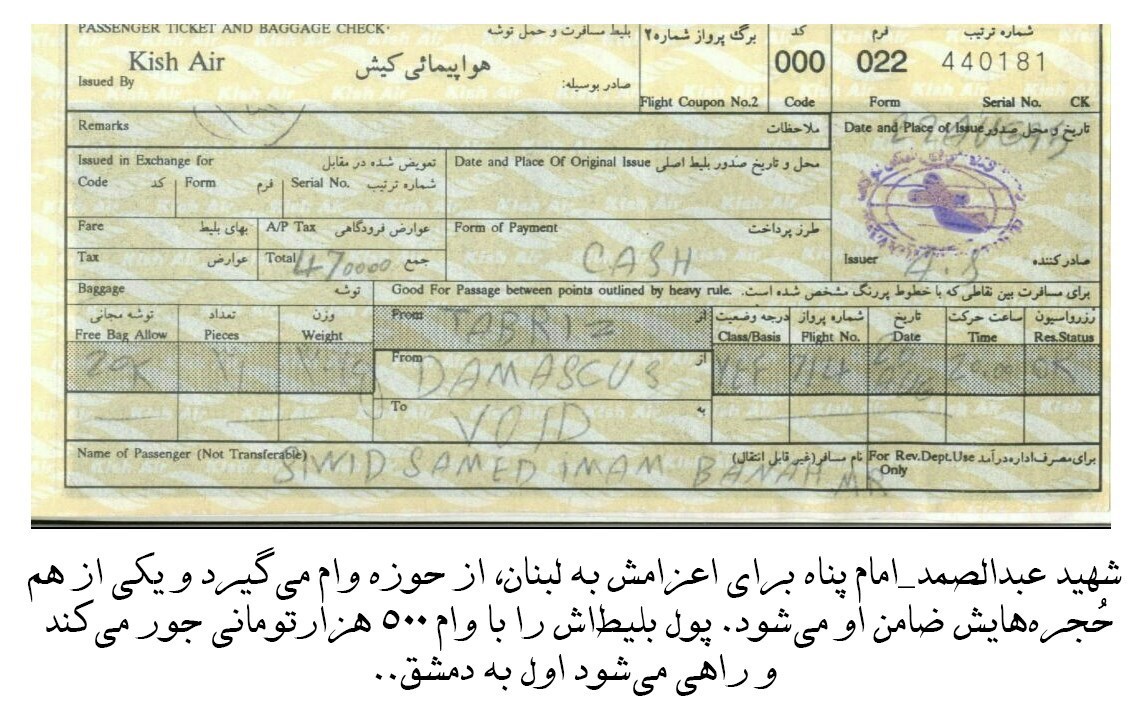 PASSENGER TICKET AND BAGGAGE CHECK· بلیط مسافرت و حمل توشه برگ پرواز شماره۲ کد فرم شماره ترتیب
Kish Air هواپیمائی کیش 000 022 440181
Issued By صادر بوسیله: Flight Coupon No.2 Code Form Serial No. CK
Remarks ملاحظات Date and Place of Issue تاریخ و محل صدور
Issued in Exchange for تعویض شده در مقابل Date and Place Of Original Issue محل و تاریخ صدور بلیط اصلی
Code کد Form فرم Serial No. شماره ترتیب
Fare بهای بلیط A/P Tax عوارض فرودگاهی Form of Payment طرز پرداخت
Tax عوارض Total 470000 جمع CASH Issuer صادر کننده
Baggage توشه Good For Passage between points outlined by heavy rule. برای مسافرت بین نقاطی که با خطوط پررنگ مشخص شده است.
توشه مجانی تعداد وزن From TABRIZ از درجه وضعیت شماره پرواز تاریخ ساعت حرکت رزرواسیون
Free Bag Allow Pieces Weight Class/Basis Flight No. Date Time Res.Status
20K From DAMASCUS از 714 OK
To VOID به
Name of Passenger (Not Transferable) نام مسافر(غیر قابل انتقال) For Rev.Dept.Use برای مصرف اداره درآمد
Only
SAMED IMAM BANAH MR
شهید عبدالصمد_امام پناه برای اعزامش به لبنان، از حوزه وام می‌گیرد و یکی از هم
حُجره‌هایش ضامن او می‌شود. پول بلیطاش را با وام ۵۰۰ هزارتومانی جور می‌کند
و راهی می‌شود اول به دمشق..